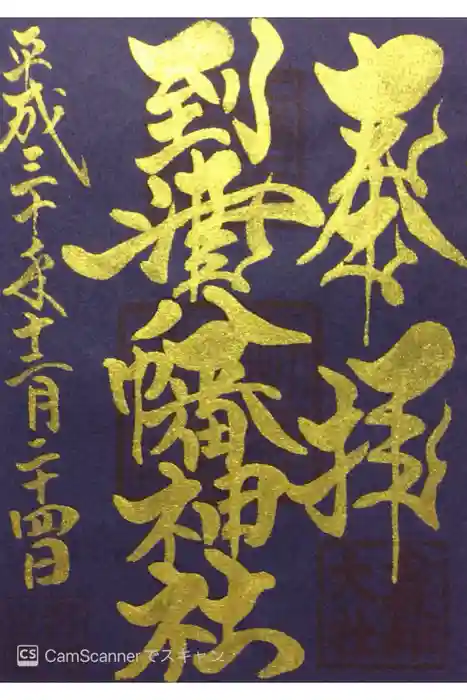 奉拝
到津八幡神社
平成三十年十二月二十四日
CS CamScannerでスキャン